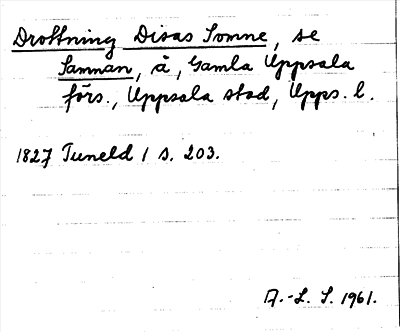 Drottning Disas Tomne, se
Samnan, å, Gamla Uppsala
förs., Uppsala stad, Upps. l.
1827 Tuneld 1 s. 203.
A.-L. S. 1961.